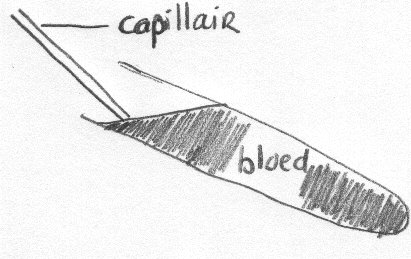 capillair
bloed